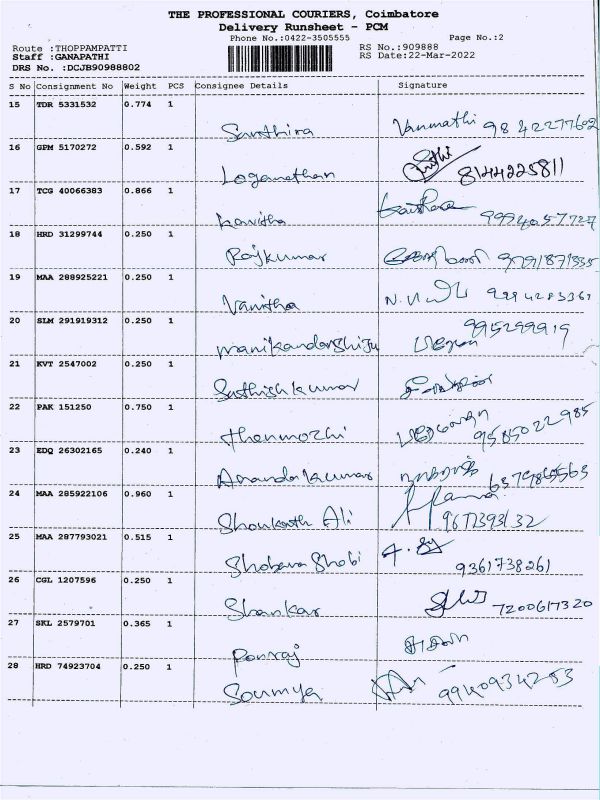 THE PROFESSIONAL COURIERS, Coimbatore
Delivery Runsheet - PCM
Phone No.:0422-3505555 Page No.:2
Route :THOPPAMPATTI RS No.:909888
Staff :GANAPATHI RS Date:22-Mar-2022
DRS No. :DCJB90988802
S No Consignment No Weight PCS Consignee Details Signature
15 TDR 5331532 0.774 1
Santhira Vanmathi 9842277602
16 GPM 5170272 0.592 1
Loganathan 8144225811
17 TCG 40066383 0.866 1
Kavitha 9994057727
18 HRD 31299744 0.250 1
Rajkumar 9791871335
19 MAA 288925221 0.250 1
Vanitha
20 SLM 291919312 0.250 1
Manikandanshiju 995299919
21 KVT 2547002 0.250 1
Sathishkumar
22 PAK 151250 0.750 1
Thenmozhi 9585022985
23 EDQ 26302165 0.240 1
Anandakumar
24 MAA 285922106 0.960 1
Shoukath Ali 9677393132
25 MAA 287793021 0.515 1
Shobana Shobi 9361738261
26 CGL 1207596 0.250 1
Shankar 7200617320
27 SKL 2579701 0.365 1
Ponraj
28 HRD 74923704 0.250 1
Soumya 9940934253